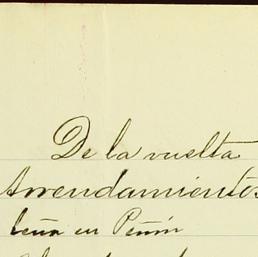 De la vuelta
Arrendamientos
leña en Peñón